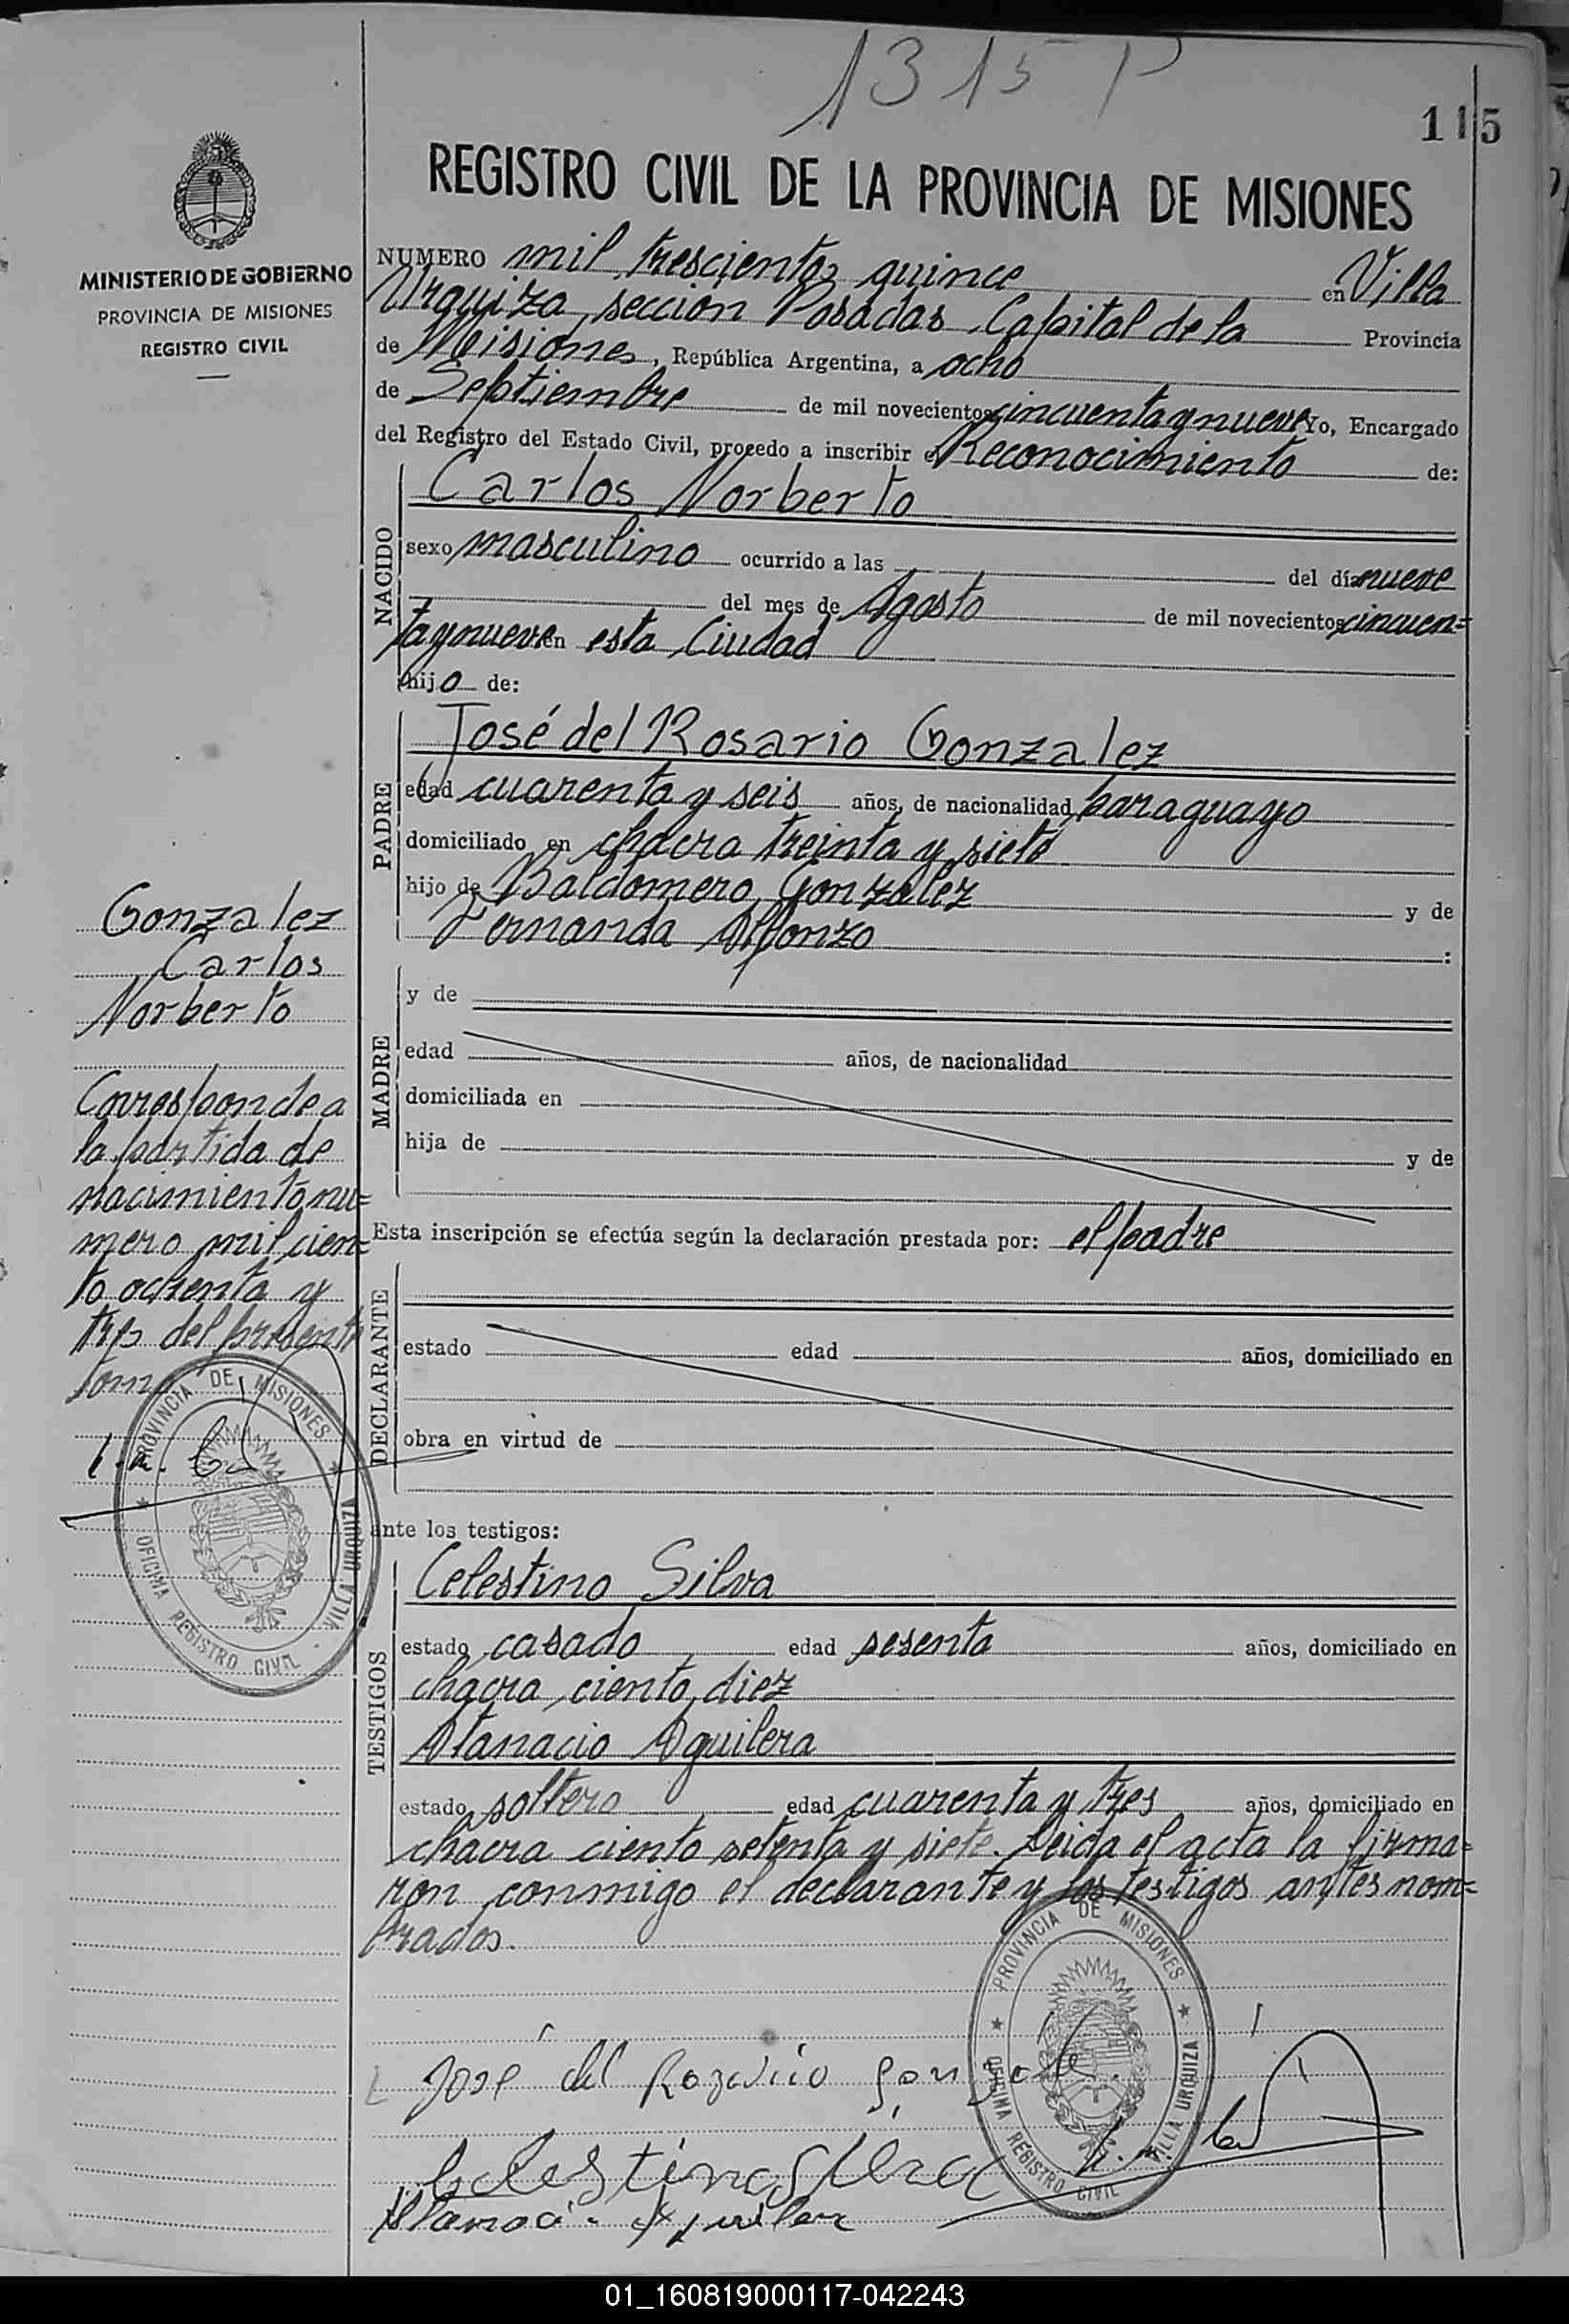 1315 P
115
REGISTRO CIVIL DE LA PROVINCIA DE MISIONES
MINISTERIO DE GOBIERNO
PROVINCIA DE MISIONES
REGISTRO CIVIL
NUMERO mil trescientos quince en Villa
Urquiza, sección Posadas, Capital de la Provincia
de Misiones, República Argentina, a ocho
de Septiembre de mil novecientos cincuenta y nueve Yo, Encargado
del Registro del Estado Civil, procedo a inscribir el Reconocimiento de:
NACIDO
Carlos Norberto
sexo masculino ocurrido a las del día nueve
del mes de Agosto de mil novecientos cincuen=
ta y nueve en esta Ciudad
hijo de:
PADRE
José del Rosario Gonzalez
edad cuarenta y seis años, de nacionalidad paraguayo
domiciliado en chacra treinta y siete
hijo de Baldomero Gonzalez y de
Fernanda Alfonzo :
MADRE
y de
edad años, de nacionalidad
domiciliada en
hija de y de
Esta inscripción se efectúa según la declaración prestada por: el padre
DECLARANTE
estado edad años, domiciliado en
obra en virtud de
ante los testigos:
TESTIGOS
Celestino Silva
estado casado edad sesenta años, domiciliado en
chacra ciento diez
Atanacio Aguilera
estado soltero edad cuarenta y tres años, domiciliado en
chacra ciento setenta y siete. Leida el acta la firma=
ron conmigo el declarante y los testigos antes nom=
brados.
Gonzalez
Carlos
Norberto
Corresponde a
la partida de
nacimiento nu=
mero mil cien=
to ochenta y
tres del presente
tomo
PROVINCIA DE MISIONES
OFICINA REGISTRO CIVIL
VILLA URQUIZA
José del Rozario
PROVINCIA DE MISIONES
OFICINA REGISTRO CIVIL
VILLA URQUIZA
01_160819000117-042243